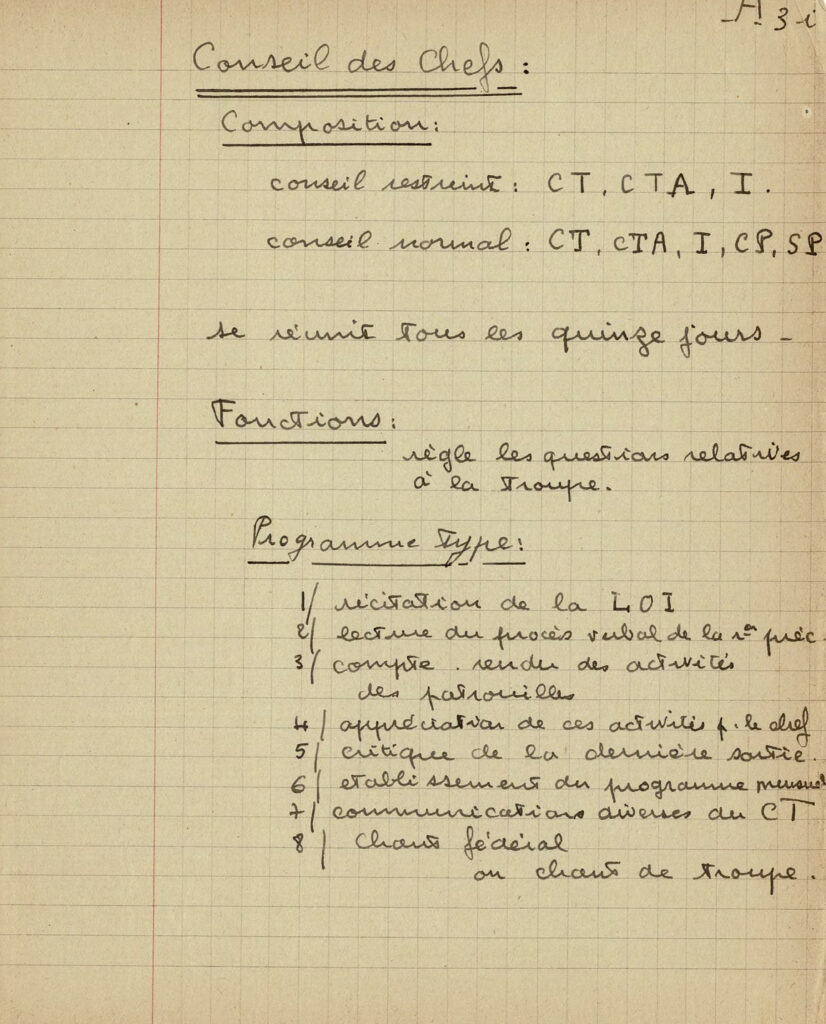 A 3 i
Conseil des Chefs :
Composition :
conseil restreint : CT, CTA, I.
conseil normal : CT, CTA, I, CP, SP
se réunit tous les quinze jours -
Fonctions :
règle les questions relatives
à la troupe.
Programme type :
1/ récitation de la LOI
2/ lecture du procès verbal de la réon préc.
3/ compte. rendu des activités
des patrouilles
4/ appréciation de ces activités p. le chef
5/ critique de la dernière sortie.
6/ etablissement du programme mensuel
7/ communications diverses du CT
8/ Chant fédéral
ou chant de troupe.